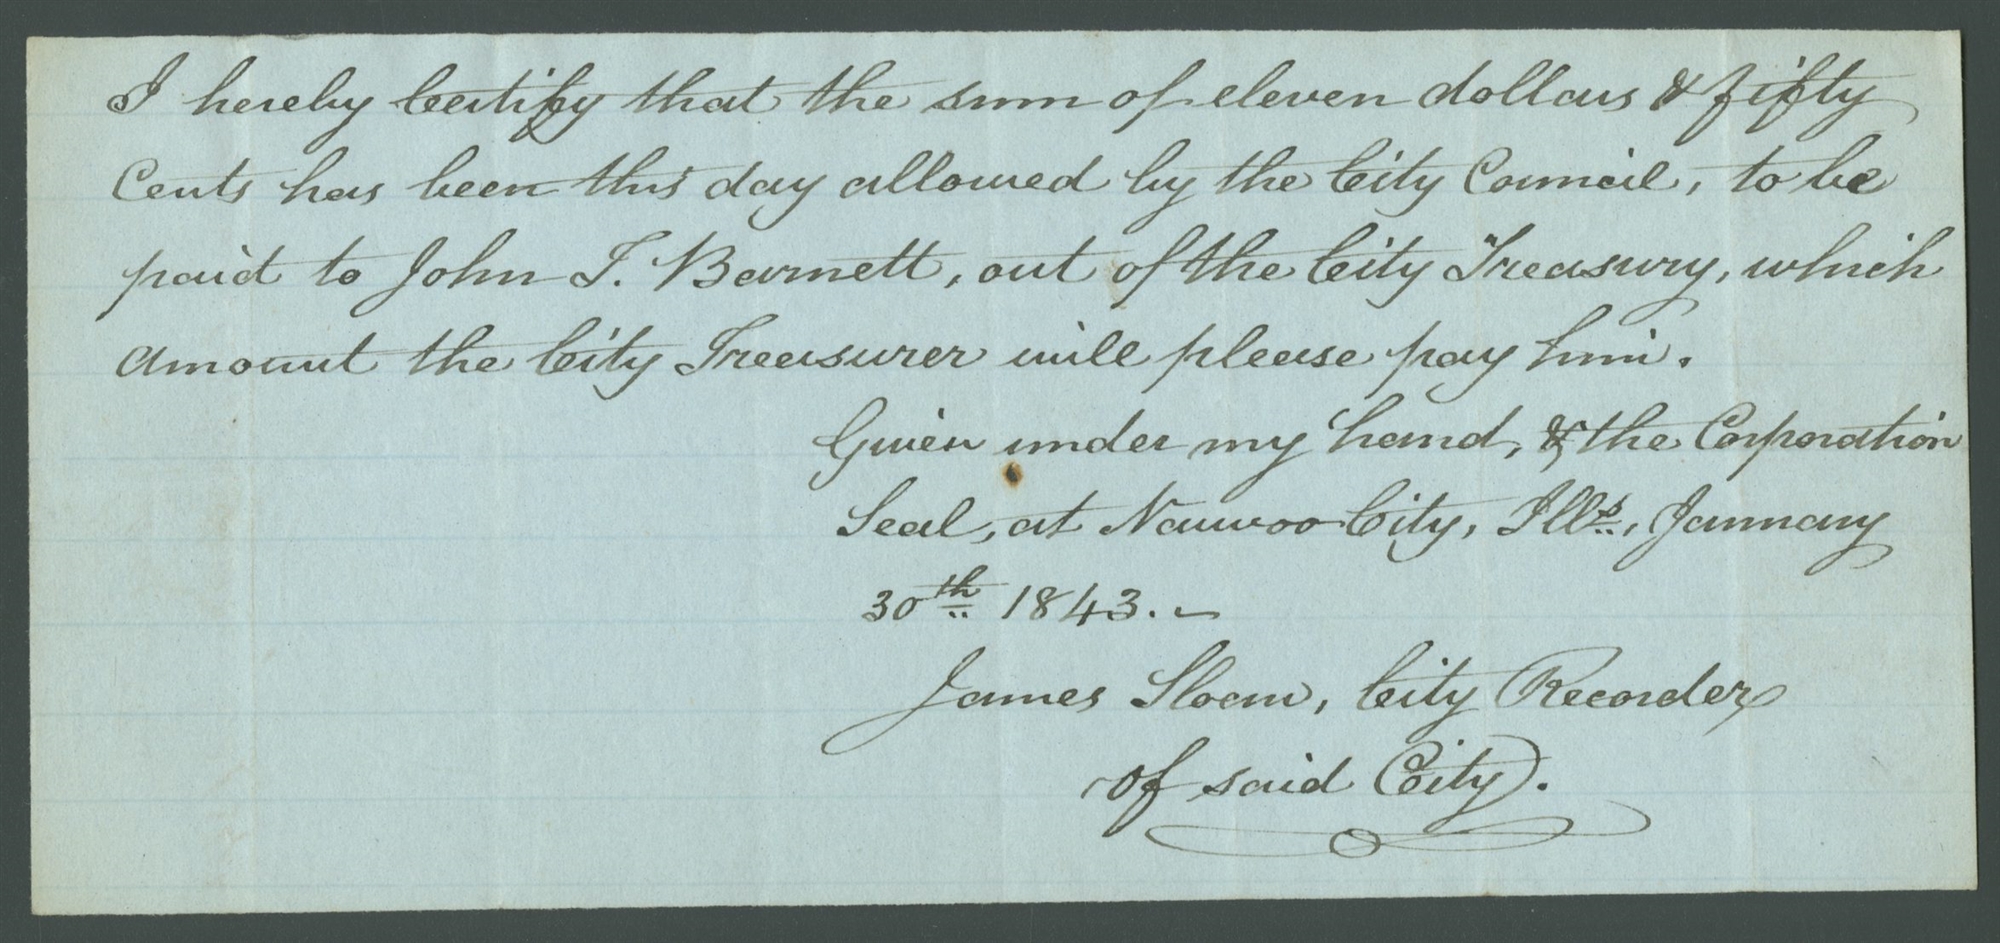 I hereby Certify that the sum of eleven dollars & fifty
Cents has been this day allowed by the City Council, to be
paid to John T. Barnett, out of the City Treasury, which
amount the City Treasurer will please pay him.
Given under my hand, & the Corporation
Seal, at Nauvoo City, Ills., January
30th 1843.
James Sloan, City Recorder
of said City.